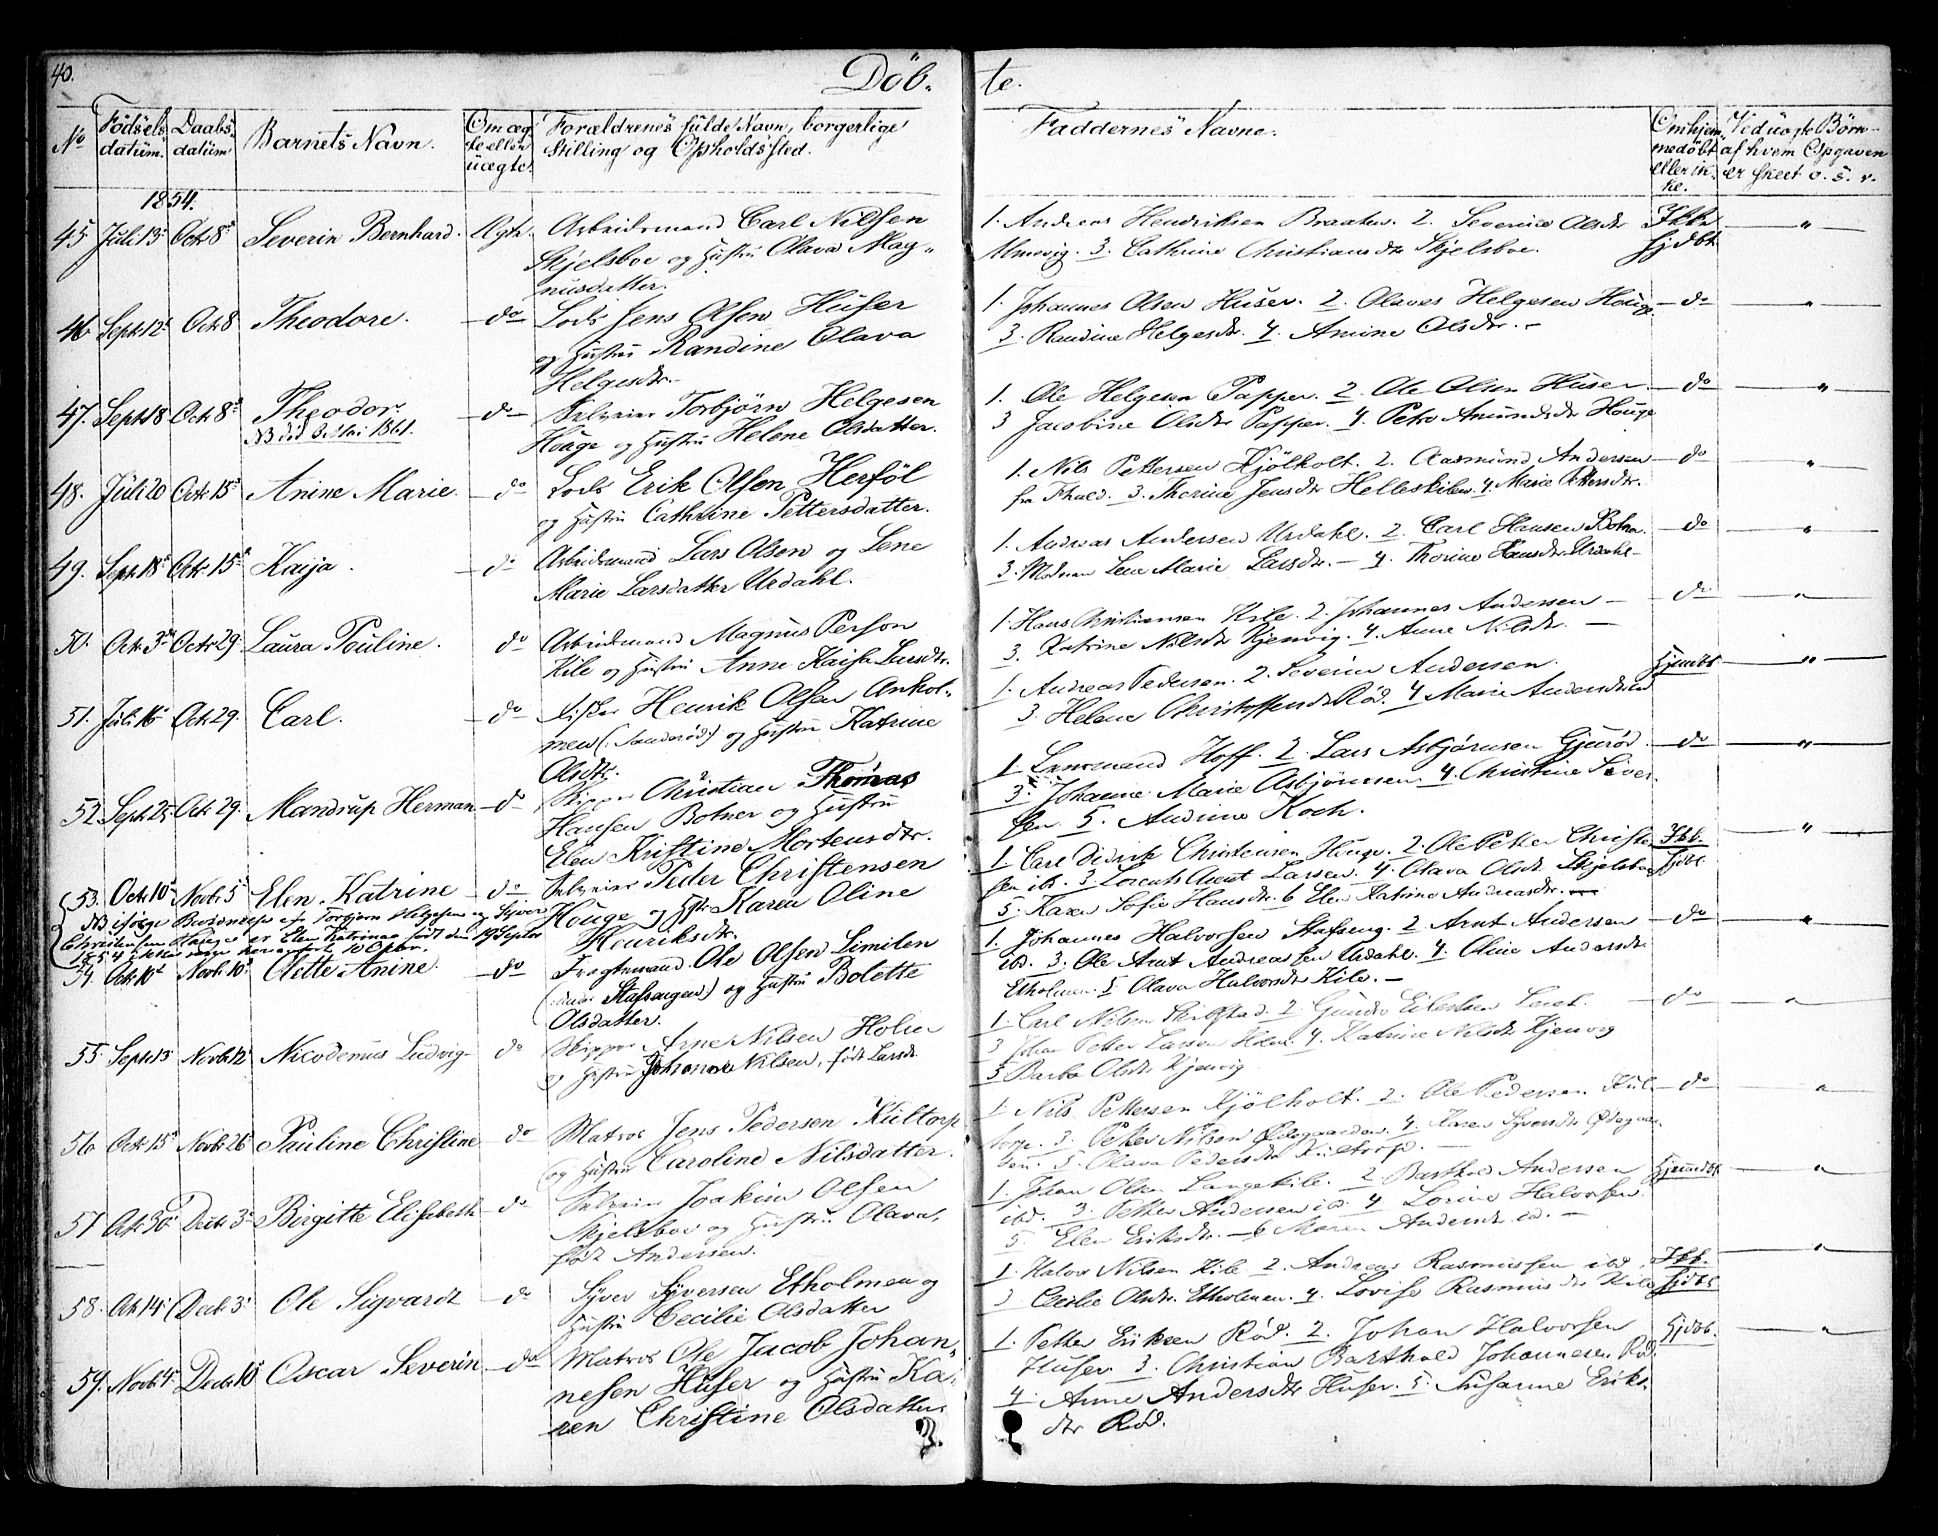 40.
Döb-
te.
No
Födsels-datum.
Daabs-datum
Barnets Navn.
Om ægte eller uægte.
Forældrenes fulde Navn, borgerlige Stilling og Opholdssted.
Faddernes Navne.
Om hjemmedøbt eller ikke.
Ved uægte Børn af hvem Opgaven er skeet o. s. v.
1854.
45. Juli 13 Octr 8de Severin Bernhard. Ægte. Arbeidsmand Carl Nilsen
Skjelsboe og Hustru Olava Mag-
nusdatter.
1. Andreas Hendriksen Braaten. 2. Severine Olsdtr
3. Cathrine Christiansdtr Skjelsboe.
46 Septr 12 Octr 8 Theodore. do Lods Jens Olsen Huser
og Hustru Randine Olava
Helgesdtr.
1. Johannes Olsen Huser. 2. Olaves Helgesen Houge. do "
3. Randine Helgesdtr. 4. Amine Olsdtr.
47. Septr 18 Octr 8de Theodor. do Selveier Torbjørn Helgesen
NB død 3. Mai 1861.
Houge og Hustru Helene Olsdatter.
1. Ole Helgesen Papper. 2. Ole Olsen Huser. do "
3 Jacobine Olsdtr Papper. 4. Petra Amundsdtr Houge
48. Juli 20 Octr 15 Anine Marie. do Lods Erik Olsen Herföl
og Hustru Cathrine Pettersdatter.
1. Nils Pettersen Kjölholt. 2. Aasmund Andersen do "
fra Fhald. 3. Thorine Jensdtr Helleskilen 4. Marie Pettersdtr.
49. Septr 18 Octr 15 Kaija. do Arbeidsmand Lars Olsen og Lene
Marie Larsdatter Urdahl.
1. Andreas Andersen Urdahl. 2. Carl Hansen Botne. do "
3. Moderen Lene Marie Larsdtr. 4. Thorine Hansdtr Urdahl
50. Octr 3 Octr 29. Laura Pouline. do Arbeidsmand Magnus Person
Kile og Hustru Anne Kaisa Larsdtr.
1. Hans Christiansen Kile. 2. Johannes Andersen do "
3. Katrine Nilsdtr Kjenvig. 4. Anne Nilsdtr.
51. Juli 16 Octr 29. Carl. do Fisker Henrik Olsen Ankol-
men (Sanderöd) og Hustru Katrine
Olsdtr.
1. Andreas Pedersen. 2. Severin Andersen. "
3. Helene Christoffersdtr Röd. 4 Marie Andersdtr
52. Septr 25 Octr 29. Mandrup Herman do Skipper Christian Thomas
Hansen Botner og Hustru
Elen Kristine Mortensdtr.
1. Lensmand Hoff. 2. Lars Asbjørnsen Gjerød. do "
3. Johanne Marie Asbjørnsen 4. Christine Siver-
sen 5. Andrine Koch.
53. Octr 10 Novbr 5 Elen Katrine do Selveier Peder Christensen
Houge og Hstr Karen Oline
Henriksdtr.
NB ifølge Bevidnelse af Torbjørn Helgesen og Syver
Christensen Houge er Elen Katrine født den 19 Septbr
1854
1 Carl Didrik Christensen Houge. 2. Ole Petter Christen-
sen ibd. 3. Lorents Arent Larsen. 4. Olava Olsdtr Skjelsboe
5. Karen Sofie Hansdtr. 6 Elen Katrine Andreasdtr.
54. Octr 10 Novbr 10 Olette Anine. do Fragtemand Ole Olsen Similen
Stafsengen) og Hustru Bolette
Olsdatter.
1. Johannes Halvorsen Stafseng. 2 Arnt Andersen do "
ibd. 3. Ole Arnt Andreassen Urdahl. 4. Oline Andersdtr
Etholmen. 5 Olava Halvorsdtr Kile.
55 Septr 13 Novbr 12 Nicodemus Ludvig do Skipper Arne Nilsen Holen
og Hustru Johanne Nilsen, født Larsdtr
1. Carl Nilsen 2 Eilertsen do "
3 Johan Petter Larsen Holen. 4. Katrine Nilsdtr Kjenvig
5 Barba Olsdtr Kjenvig
56 Octr 15 Novbr 26 Pauline Christine do Matros Jens Pedersen Kultorp
og Hustru Caroline Nilsdatter.
1 Nils Pettersen Kjölholt. 2. Ole Pedersen Kul- do "
torp. 3. Petter Nilsen Ødegaarden. 4. Karen Syversdtr Ødegaar-
den. 5. Olava Pedersdtr Kultorp.
57 Octr 30 Decbr 3 Birgitte Elisabeth do Selveier Joakim Olsen
Skjelsboe og Hustru Olava,
født Andersen.
1. Johan Olsen Langekile. 2 Barthold Andersen "
ibd. 3. Petter Andersen ibd. 4 Lorine Halvorsen.
5. Elen Eriksdtr. 6 Maren Andersdtr ibd.
58. Octr 14 Decbr 3 Ole Sigvardt do Syver Syversen Etholmen og
Hustru Cecilie Olsdatter
1. Halvor Nilsen Kile 2. Andreas Rasmussen ibd. "
3 Cecilie Olsdtr. Etholmen. 4. Lovise Rasmusdtr Kile
59. Novbr 4 Decbr 10 Oscar Severin. do Matros Ole Jacob Johan-
nesen Huser og Hustru Ka-
ren Christine Olsdatter
1. Petter Eriksen Röd. 2. Johan Halvorsen "
Huser 3. Christian Barthold Johannesen Röd.
4. Anne Andersdtr Huser. 5. Susanne Eriks-
dtr Röd.